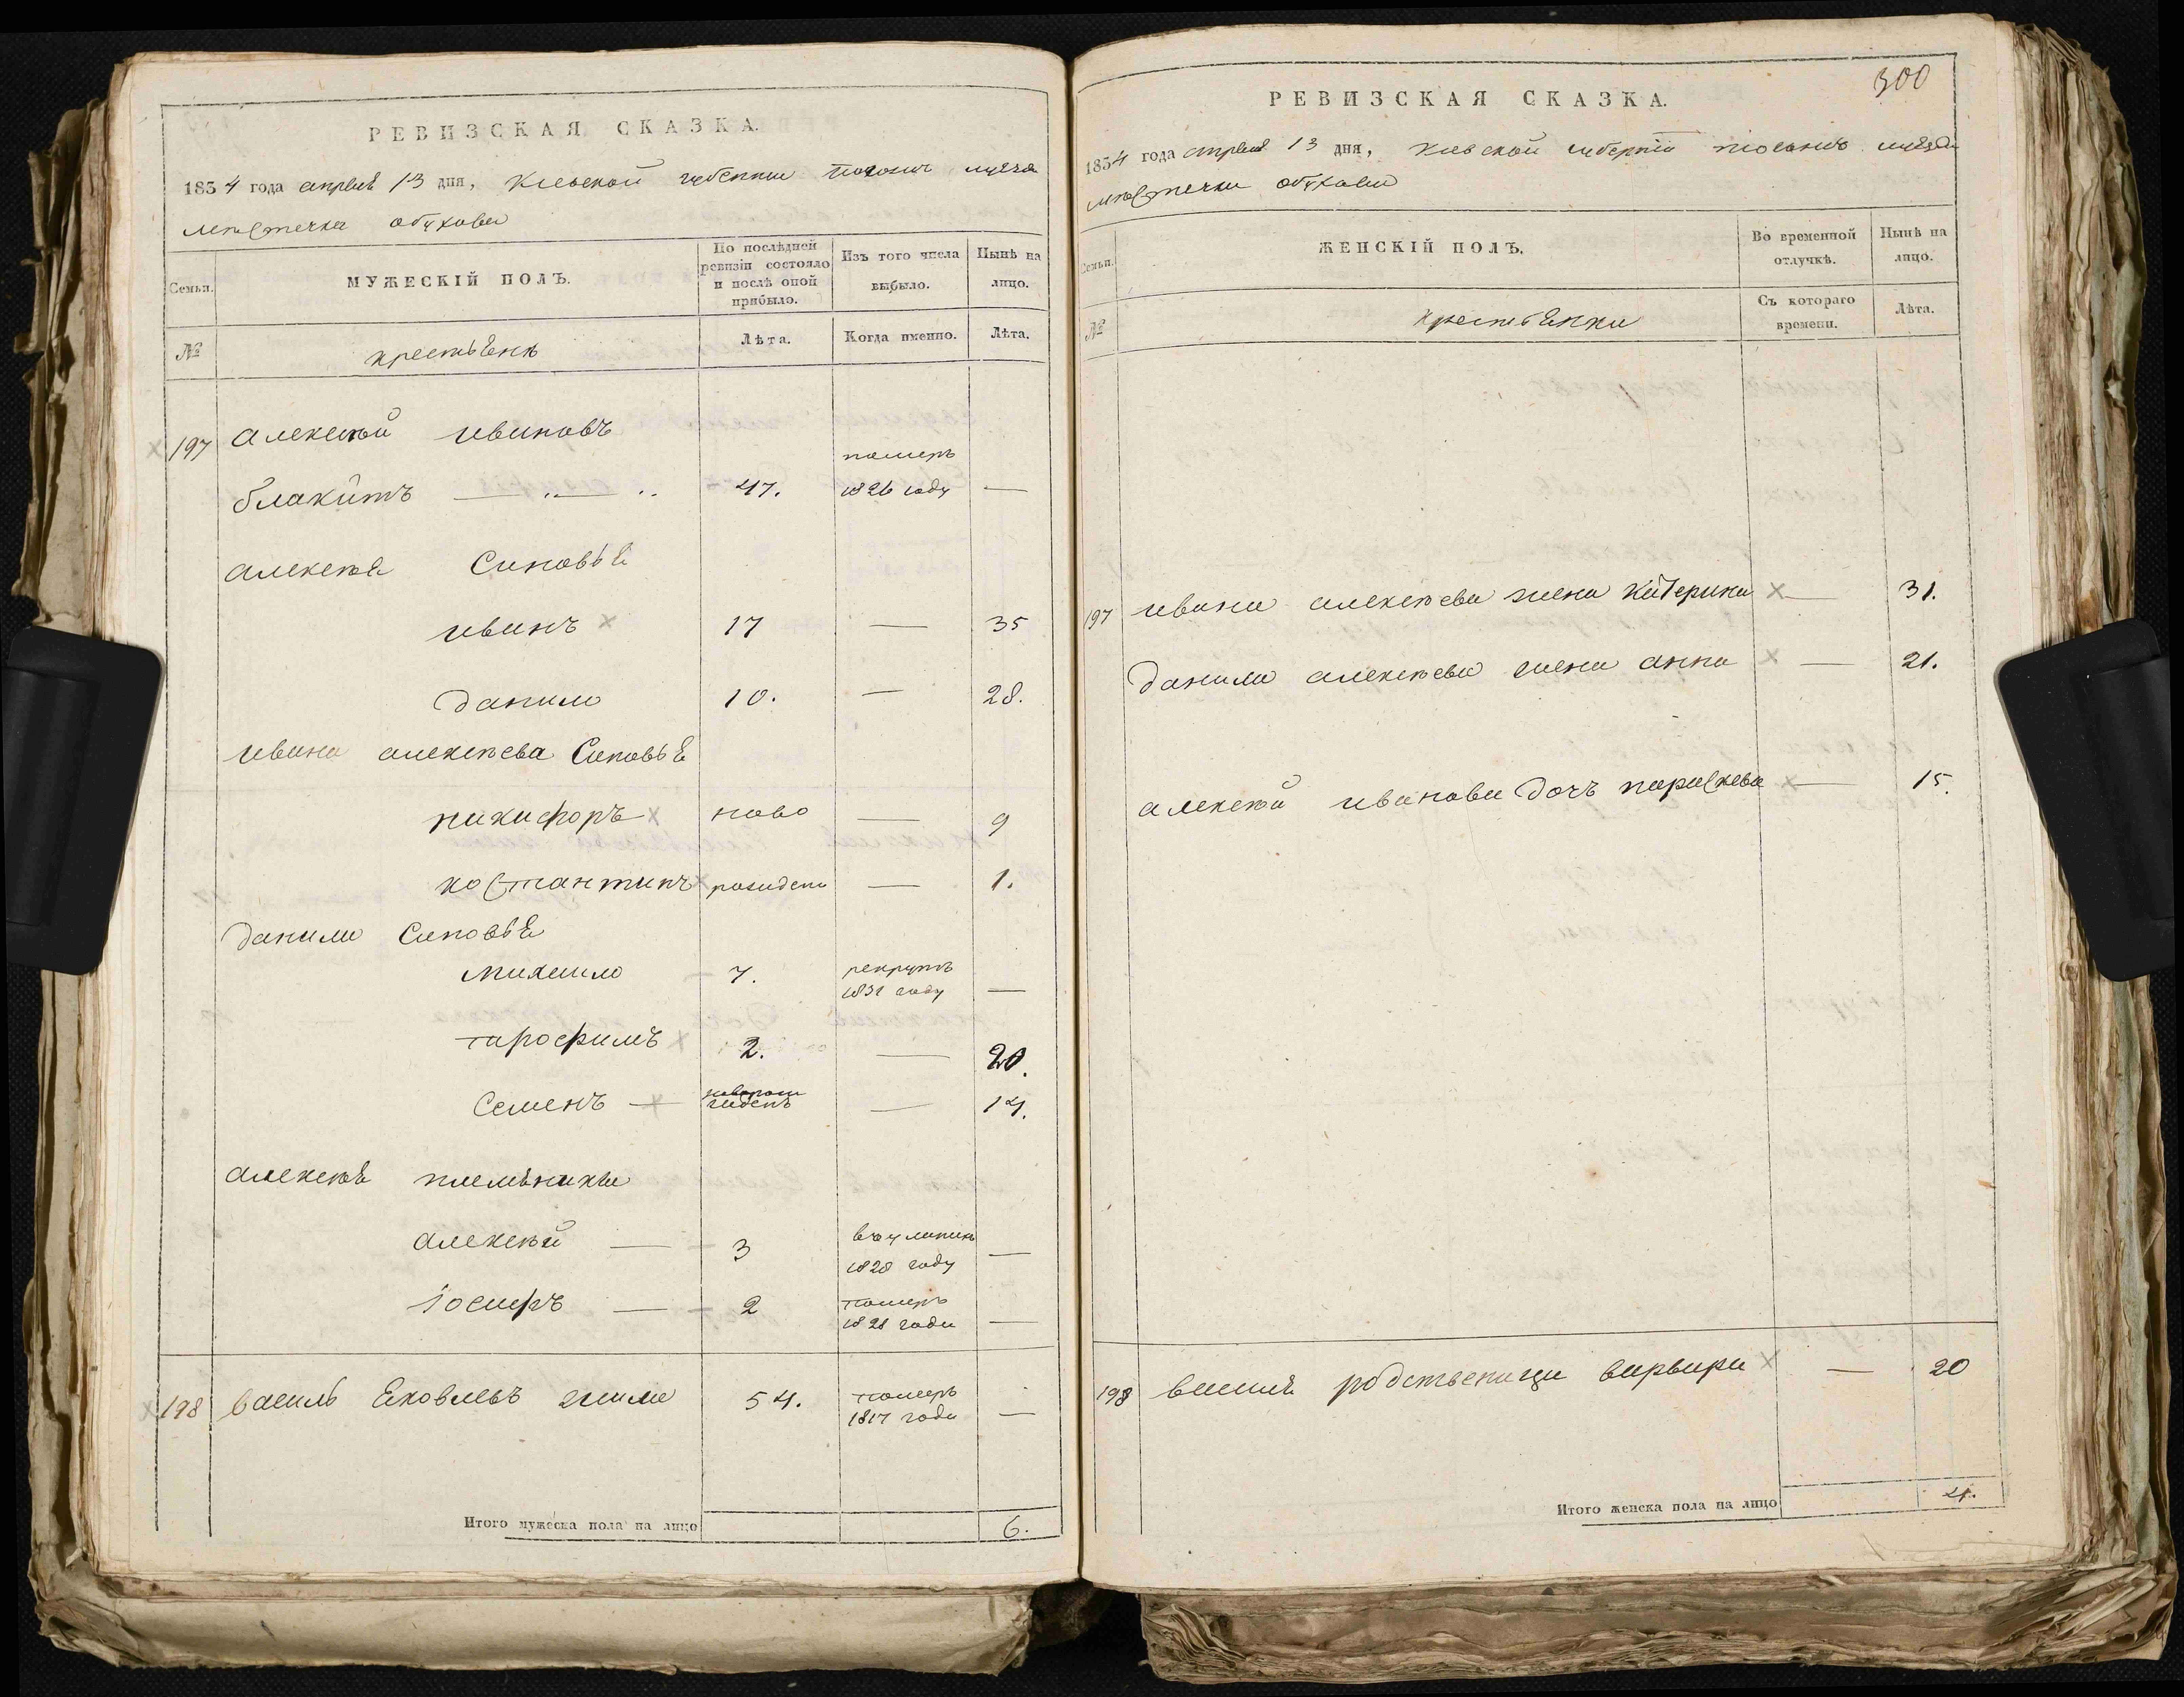 РЕВИЗСКАЯ СКАЗКА.
1834 года апреля 13 дня, Киевской губернии
местечка обухова
Семьи.
МУЖЕСКІЙ ПОЛЪ.
По послѣдней ревизіи состояло и послѣ оной прибыло.
Изъ того числа выбыло.
Нынѣ на лицо.
№
крестьѣнѣ
Лѣта.
Когда именно.
Лѣта.
197 алексѣй ивановъ
блакитъ 47. померъ 1826 году —
алексѣѣ Синовьѣ
иванъ 17 — 35
данило 10. — 28.
ивана алексѣева Синовьѣ
никифоръ ново — 9
костантинъ рожиденъ — 1.
данила Синовьѣ
михаило 7. рекрутъ 1831 году —
трофимъ 2. — 20.
Семенъ — наворож жиденъ — 14.
алексѣѣ племѣники
алексѣй — 3 1828 году —
іосифъ — 2 померъ 1821 года —
198 василь Ековлевъ 54. померъ 1817 года —
Итого мужеска пола на лицо 6.
300
РЕВИЗСКАЯ СКАЗКА.
1834 года апреля 13 дня, Киевской губернии
местечка обухова
Семьи.
ЖЕНСКІЙ ПОЛЪ.
Во временной отлучкѣ.
Нынѣ на лицо.
№
крестьѣнки
Съ котораго времени.
Лѣта.
197 ивана алексѣева жена Катерина — 31.
данила алексѣева жена анна — 21.
алексѣй иванова дочъ параскева — 15.
198 василѣ родственица варвара — 20
Итого женска пола на лицо 4.